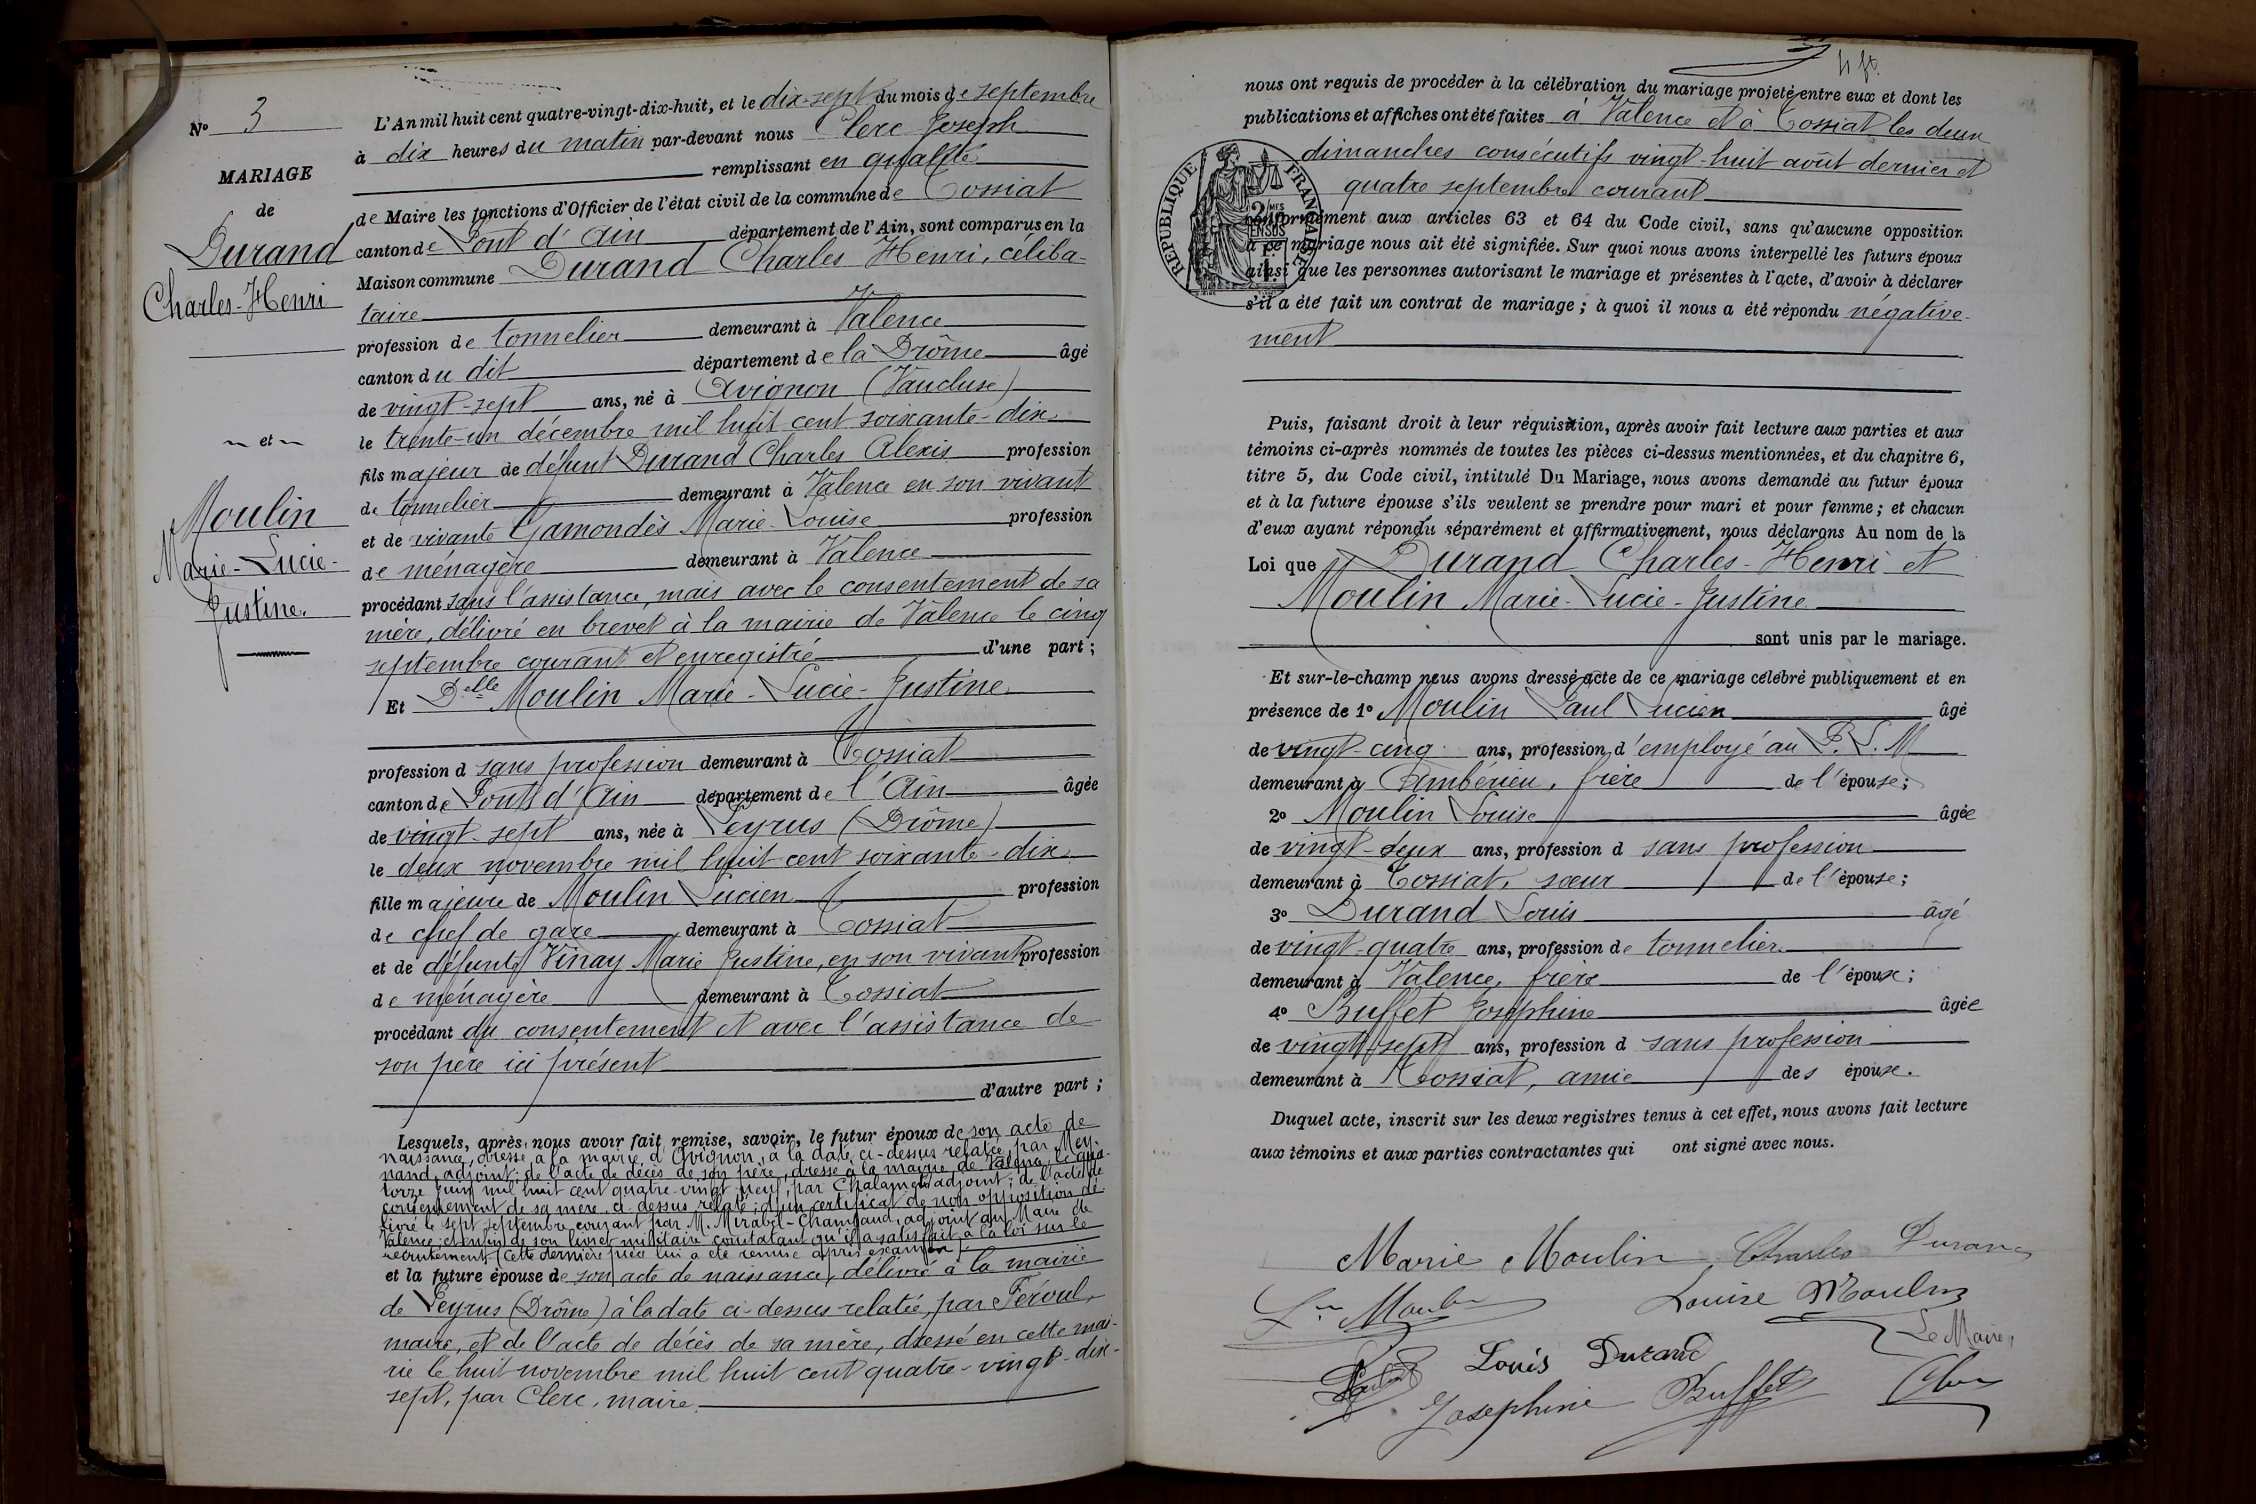 N° 3
MARIAGE
de
Durand
Charles-Henri
et
Moulin
Marie-Lucie-
Justine.
L'An mil huit cent quatre-vingt-dix-huit, et le dix-sept du mois de septembre
à dix heures du matin par-devant nous Clerc Joseph
remplissant en qualité
de Maire les fonctions d'Officier de l'état civil de la commune de Tossiat
canton de Pont d'Ain département de l'Ain, sont comparus en la
Maison commune Durand Charles Henri, céliba-
taire
profession de tonnelier demeurant à Valence
canton du dit département de la Drôme âgé
de vingt-sept ans, né à Avignon (Vaucluse)
le trente-un décembre mil huit cent soixante-dix
fils majeur de défunt Durand Charles Alexis profession
de tonnelier demeurant à Valence en son vivant
et de vivante Gamondès Marie-Louise profession
de ménagère demeurant à Valence
procédant sans l'assistance, mais avec le consentement de sa
mère, délivré en brevet à la mairie de Valence le cinq
septembre courant et enregistré d'une part ;
Et Delle Moulin Marie-Lucie-Justine
profession d sans profession demeurant à Tossiat
canton de Pont d'Ain département de l'Ain âgée
de vingt-sept ans, née à Peyrus (Drôme)
le deux novembre mil huit cent soixante-dix
fille majeure de Moulin Lucien profession
de chef de gare demeurant à Tossiat
et de défunte Vinay Marie Justine, en son vivant profession
de ménagère demeurant à Tossiat
procédant du consentement et avec l'assistance de
son père ici présent
d'autre part ;
Lesquels, après nous avoir fait remise, savoir, le futur époux de son acte de
naissance, dressé à la mairie d'Avignon, à la date ci-dessus relatée, par Mey-
nand, adjoint; de l'acte de décès de son père, dressé à la mairie de Valence, le qua-
torze juin mil huit cent quatre-vingt neuf, par Chalamet adjoint; de l'acte de
consentement de sa mère ci-dessus relaté; d'un certificat de non opposition dé-
livré le sept septembre courant par M. Mirabel-Chambaud, adjoint au Maire de
Valence; et enfin de son livret militaire constatant qu'il a satisfait à la loi sur le
recrutement (cette dernière pièce lui a été remise après examen).
et la future épouse de son acte de naissance, délivré à la mairie
de Peyrus (Drôme) à la date ci-dessus relatée, par Féroul,
maire, et de l'acte de décès de sa mère, dressé en cette mai-
rie le huit novembre mil huit cent quatre-vingt-dix-
sept, par Clerc, maire.
nous ont requis de procéder à la célébration du mariage projeté entre eux et dont les
publications et affiches ont été faites à Valence et à Tossiat les deux
dimanches consécutifs vingt-huit août dernier et
quatre septembre courant
RÉPUBLIQUE FRANÇAISE
conformément aux articles 63 et 64 du Code civil, sans qu'aucune opposition
à ce mariage nous ait été signifiée. Sur quoi nous avons interpellé les futurs époux
ainsi que les personnes autorisant le mariage et présentes à l'acte, d'avoir à déclarer
s'il a été fait un contrat de mariage ; à quoi il nous a été répondu négative-
ment
Puis, faisant droit à leur réquisition, après avoir fait lecture aux parties et aux
témoins ci-après nommés de toutes les pièces ci-dessus mentionnées, et du chapitre 6,
titre 5, du Code civil, intitulé Du Mariage, nous avons demandé au futur époux
et à la future épouse s'ils veulent se prendre pour mari et pour femme ; et chacun
d'eux ayant répondu séparément et affirmativement, nous déclarons Au nom de la
Loi que Durand Charles-Henri et
Moulin Marie-Lucie-Justine
sont unis par le mariage.
Et sur-le-champ nous avons dressé acte de ce mariage célébré publiquement et en
présence de 1° Moulin Paul Lucien âgé
de vingt-cinq ans, profession d'employé au P. L. M
demeurant à Ambérieu, frère de l'épouse ;
2° Moulin Louise âgée
de vingt-deux ans, profession d sans profession
demeurant à Tossiat, sœur de l'épouse ;
3° Durand Louis âgé
de vingt-quatre ans, profession de tonnelier
demeurant à Valence, frère de l'époux ;
4° Buffet Joséphine âgée
de vingt-sept ans, profession d sans profession
demeurant à Tossiat, amie des époux.
Duquel acte, inscrit sur les deux registres tenus à cet effet, nous avons fait lecture
aux témoins et aux parties contractantes qui ont signé avec nous.
Marie Moulin Charles Durand
Ln Moulin Louise Moulin
Le Maire,
Louis Durand
Josephine Buffet Clerc